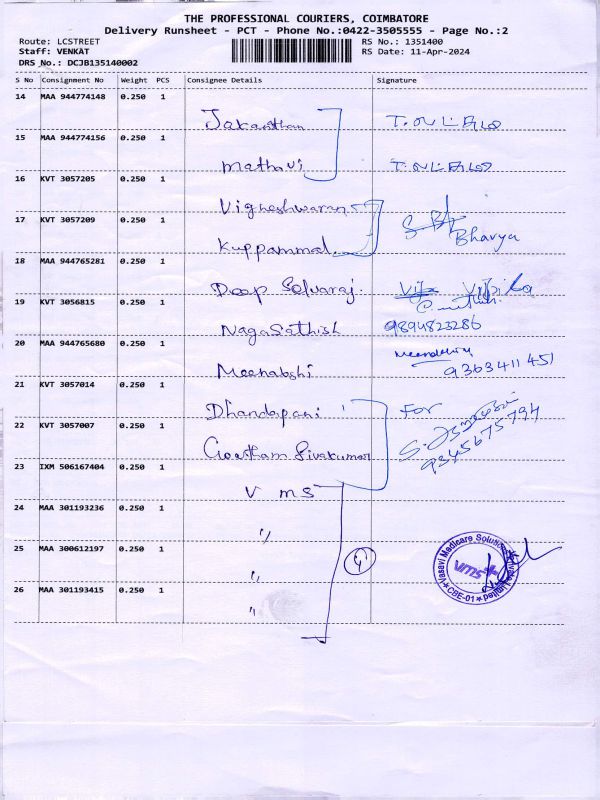 THE PROFESSIONAL COURIERS, COIMBATORE
Delivery Runsheet - PCT - Phone No.:0422-3505555 - Page No.:2
Route: LCSTREET
RS No.: 1351400
Staff: VENKAT
RS Date: 11-Apr-2024
DRS No.: DCJB135140002
S No Consignment No Weight PCS Consignee Details Signature
14 MAA 944774148 0.250 1 Jakanthan
15 MAA 944774156 0.250 1 Mathavi
16 KVT 3057205 0.250 1 Vigneshwaran
17 KVT 3057209 0.250 1 Kuppammal Bhavya
18 MAA 944765281 0.250 1 Deep Selvaraj.
19 KVT 3056815 0.250 1 NagaSathish 9894823286
20 MAA 944765680 0.250 1 Meenakshi 9363411451
21 KVT 3057014 0.250 1 Dhandapani For
22 KVT 3057007 0.250 1 Goutham Sivakumar 9345675794
23 IXM 506167404 0.250 1 V M S
24 MAA 301193236 0.250 1 "
25 MAA 300612197 0.250 1 "
26 MAA 301193415 0.250 1 "
4
Vasavi Medicare Solutions Private Limited
vms
CBE-01